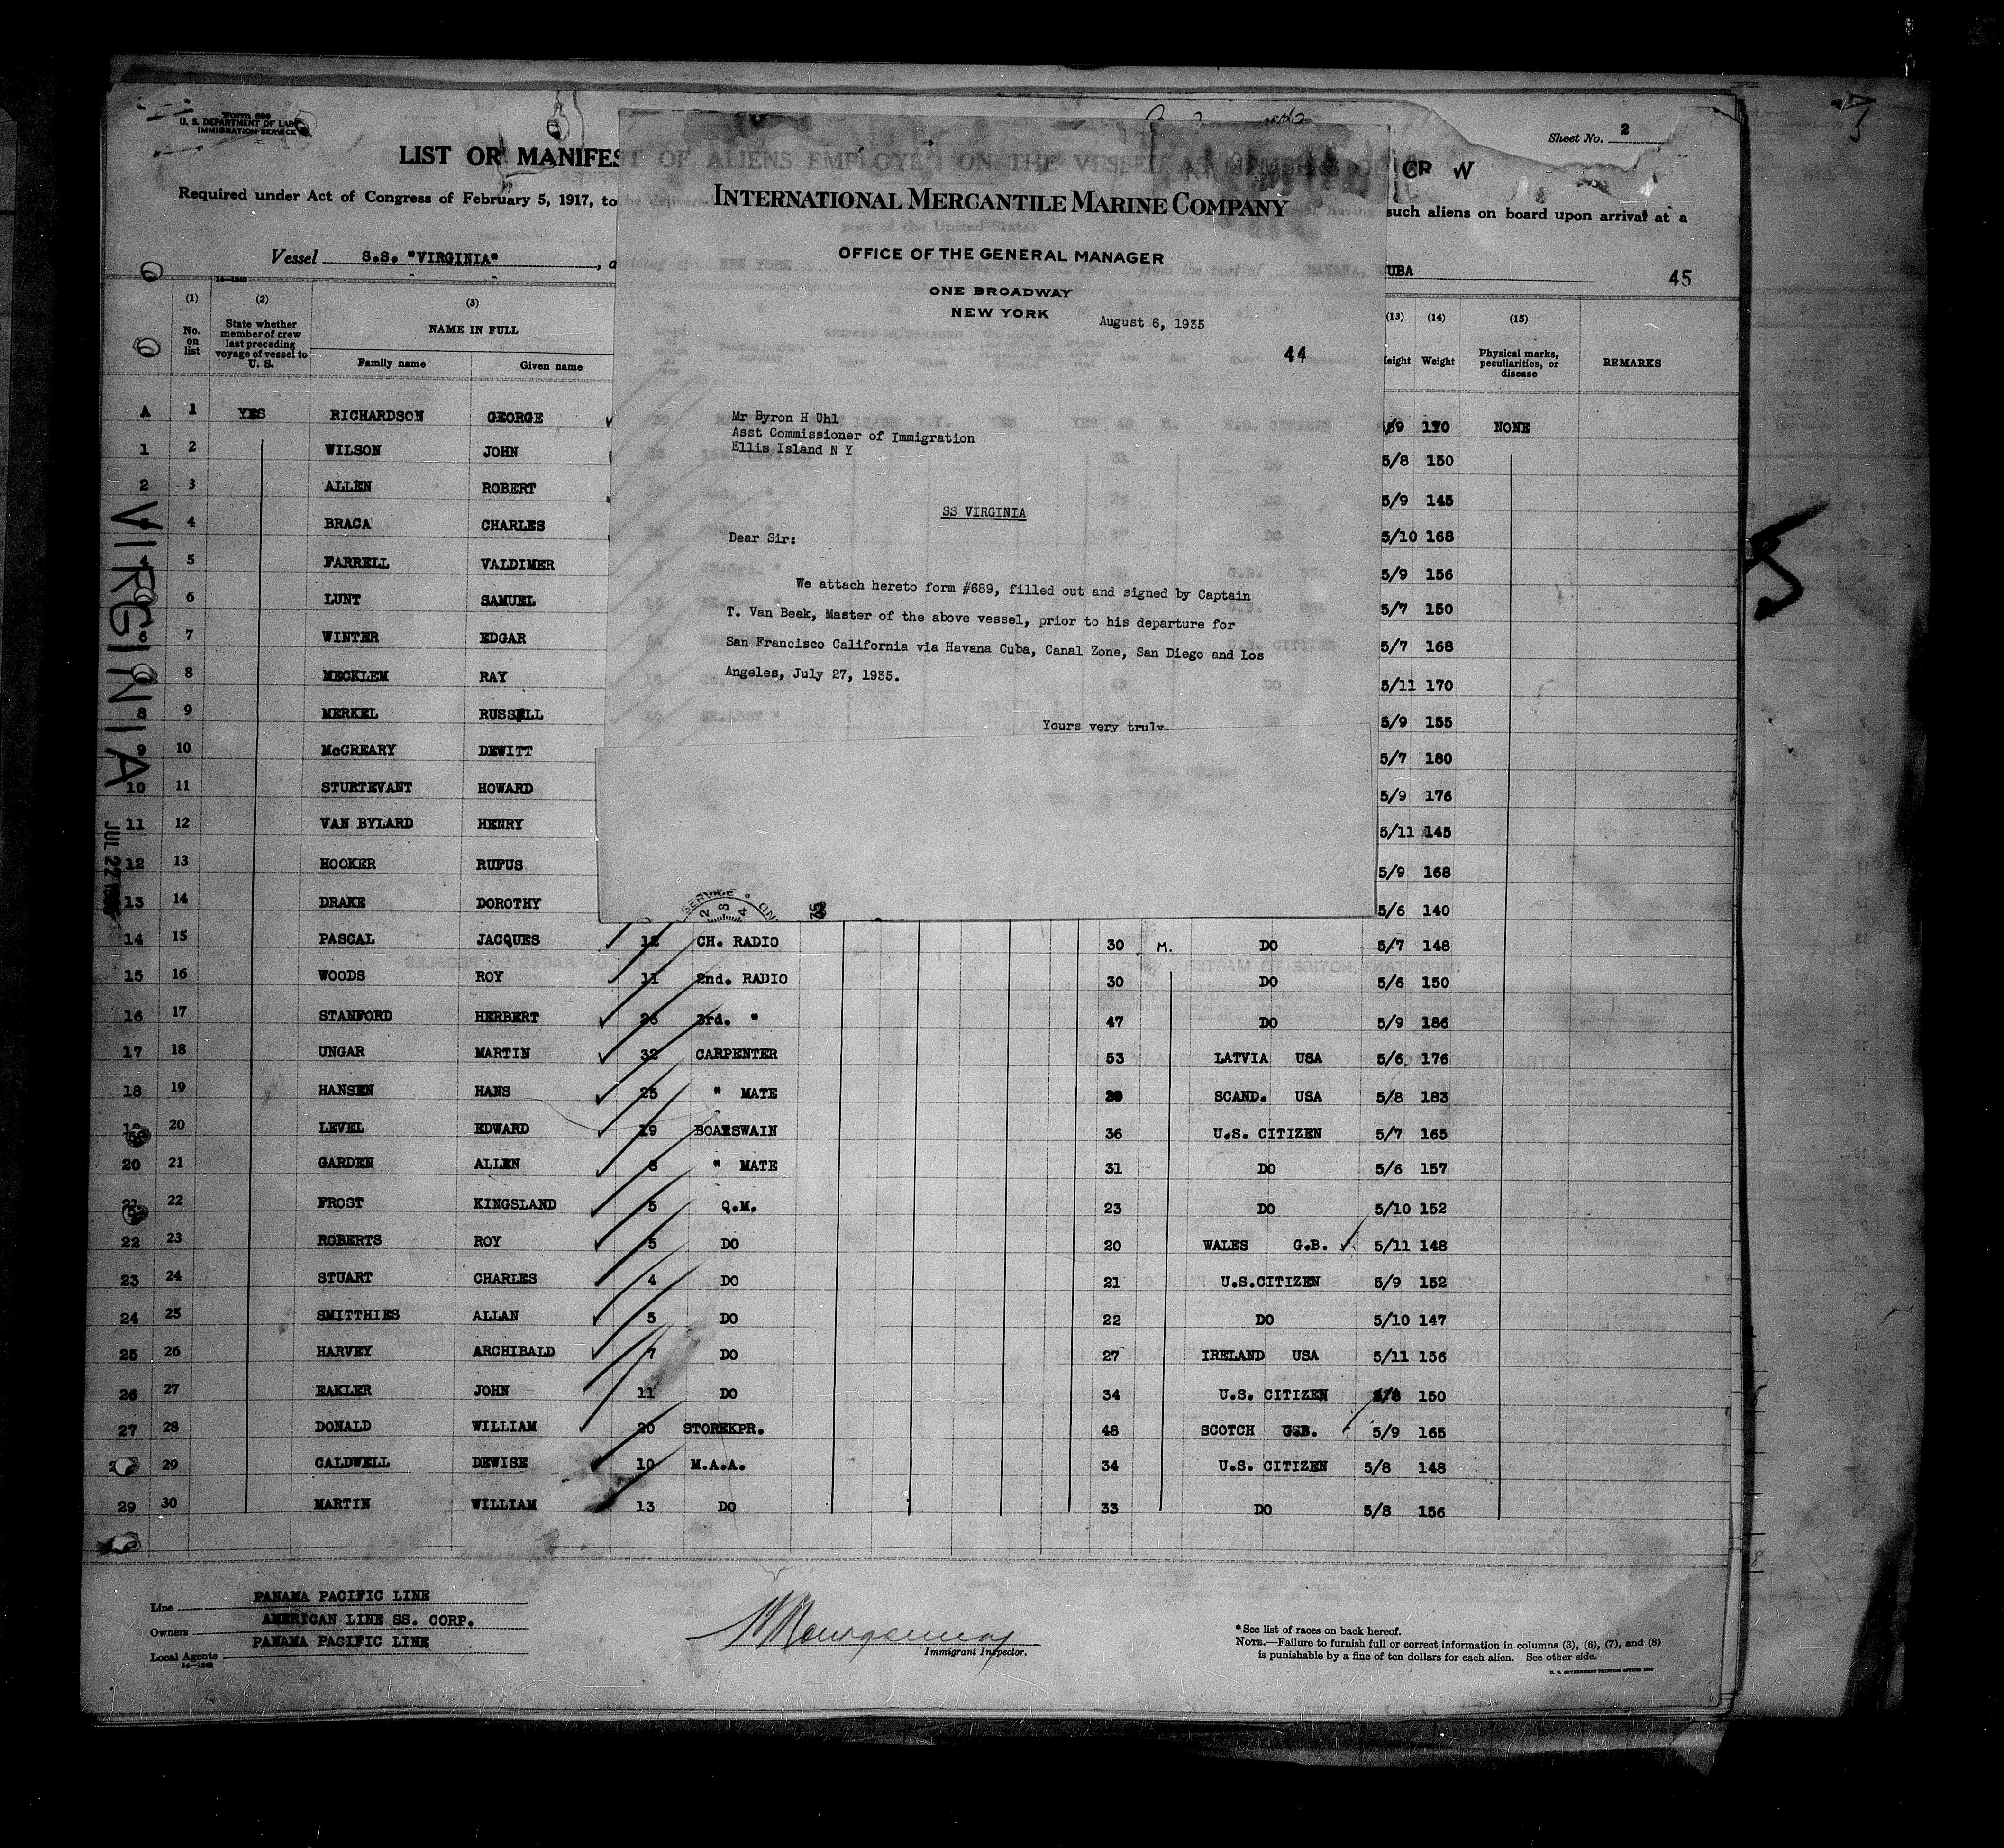 Form 680
U. S. DEPARTMENT OF LABOR
IMMIGRATION SERVICE
Sheet No. 2
LIST OR MANIFEST OF ALIENS EMPLOYED ON THE VESSEL AS MEMBERS OF CREW
Required under Act of Congress of February 5, 1917, to be delivered such aliens on board upon arrival at a
port of the United States
Vessel S.S. "VIRGINIA", NEW YORK from the port of HAVANA, CUBA
45
INTERNATIONAL MERCANTILE MARINE COMPANY
OFFICE OF THE GENERAL MANAGER
ONE BROADWAY
NEW YORK
August 6, 1935
44
Mr Byron H Uhl
Asst Commissioner of Immigration
Ellis Island N Y
SS VIRGINIA
Dear Sir:
We attach hereto form #689, filled out and signed by Captain
T. Van Beek, Master of the above vessel, prior to his departure for
San Francisco California via Havana Cuba, Canal Zone, San Diego and Los
Angeles, July 27, 1935.
Yours very truly
(1) (2) (3) (13) (14) (15)
No. on list
State whether member of crew last preceding voyage of vessel to U. S.
NAME IN FULL
Family name Given name
Weight Physical marks, peculiarities, or disease REMARKS
A 1 YES RICHARDSON GEORGE 170 NONE
1 2 WILSON JOHN 5/8 150
2 3 ALLEN ROBERT 5/9 145
4 BRACA CHARLES 5/10 168
4 5 FARRELL VALDIMER 5/9 156
6 LUNT SAMUEL 5/7 150
6 7 WINTER EDGAR 5/7 168
8 MECKLEM RAY 5/11 170
8 9 MERKEL RUSSELL 5/9 155
9 10 McCREARY DEWITT 5/7 180
10 11 STURTEVANT HOWARD 5/9 176
11 12 VAN BYLARD HENRY 5/11 145
12 13 HOOKER RUFUS 5/9 168
13 14 DRAKE DOROTHY 5/6 140
14 15 PASCAL JACQUES 12 CH. RADIO 30 M. DO 5/7 148
15 16 WOODS ROY 11 2nd. RADIO 30 DO 5/6 150
16 17 STANFORD HERBERT 26 3rd. " 47 DO 5/9 186
17 18 UNGAR MARTIN 32 CARPENTER 53 LATVIA USA 5/6 176
18 19 HANSEN HANS 25 " MATE 39 SCAND. USA 5/8 183
19 20 LEVEL EDWARD 19 BOATSWAIN 36 U.S. CITIZEN 5/7 165
20 21 GARDEN ALLEN 8 " MATE 31 DO 5/6 157
21 22 FROST KINGSLAND 5 Q.M. 23 DO 5/10 152
22 23 ROBERTS ROY 5 DO 20 WALES G.B. 5/11 148
23 24 STUART CHARLES 4 DO 21 U.S.CITIZEN 5/9 152
24 25 SMITTHIES ALLAN 5 DO 22 DO 5/10 147
25 26 HARVEY ARCHIBALD 7 DO 27 IRELAND USA 5/11 156
26 27 EAKLER JOHN 11 DO 34 U.S. CITIZEN 150
27 28 DONALD WILLIAM 20 STOREKPR. 48 SCOTCH 5/9 165
29 CALDWELL DEWISE 10 M.A.A. 34 U.S. CITIZEN 5/8 148
29 30 MARTIN WILLIAM 13 DO 33 DO 5/8 156
VIRGINIA
JUL 22
Line PANAMA PACIFIC LINE
Owners AMERICAN LINE SS. CORP.
Local Agents PANAMA PACIFIC LINE
Immigrant Inspector.
*See list of races on back hereof.
NOTE.—Failure to furnish full or correct information in columns (3), (6), (7), and (8)
is punishable by a fine of ten dollars for each alien. See other side.